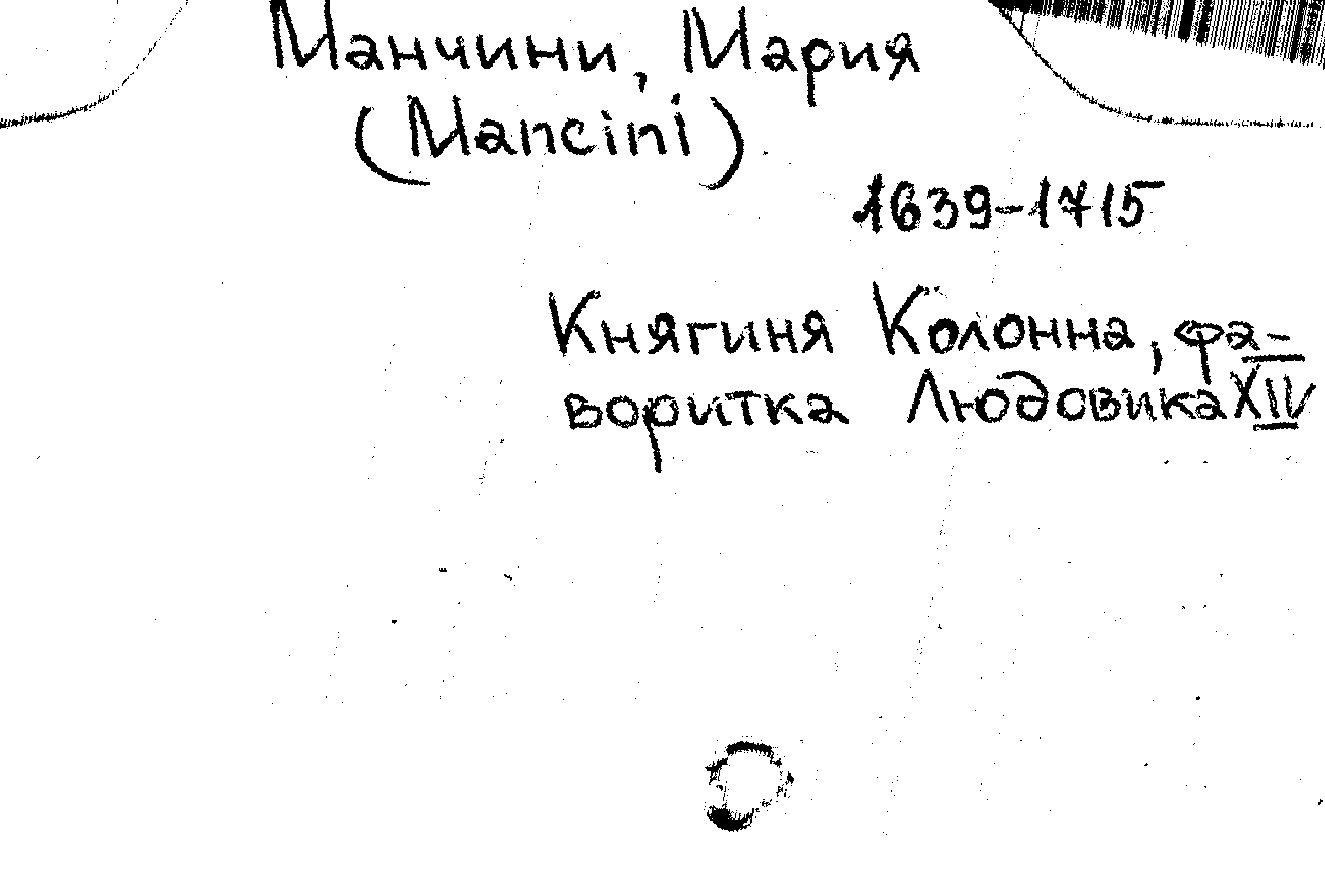 Манчини, Мария
(Mancini)
1639-1715
Княгиня Колонна, фа-
воритка Людовика XIV